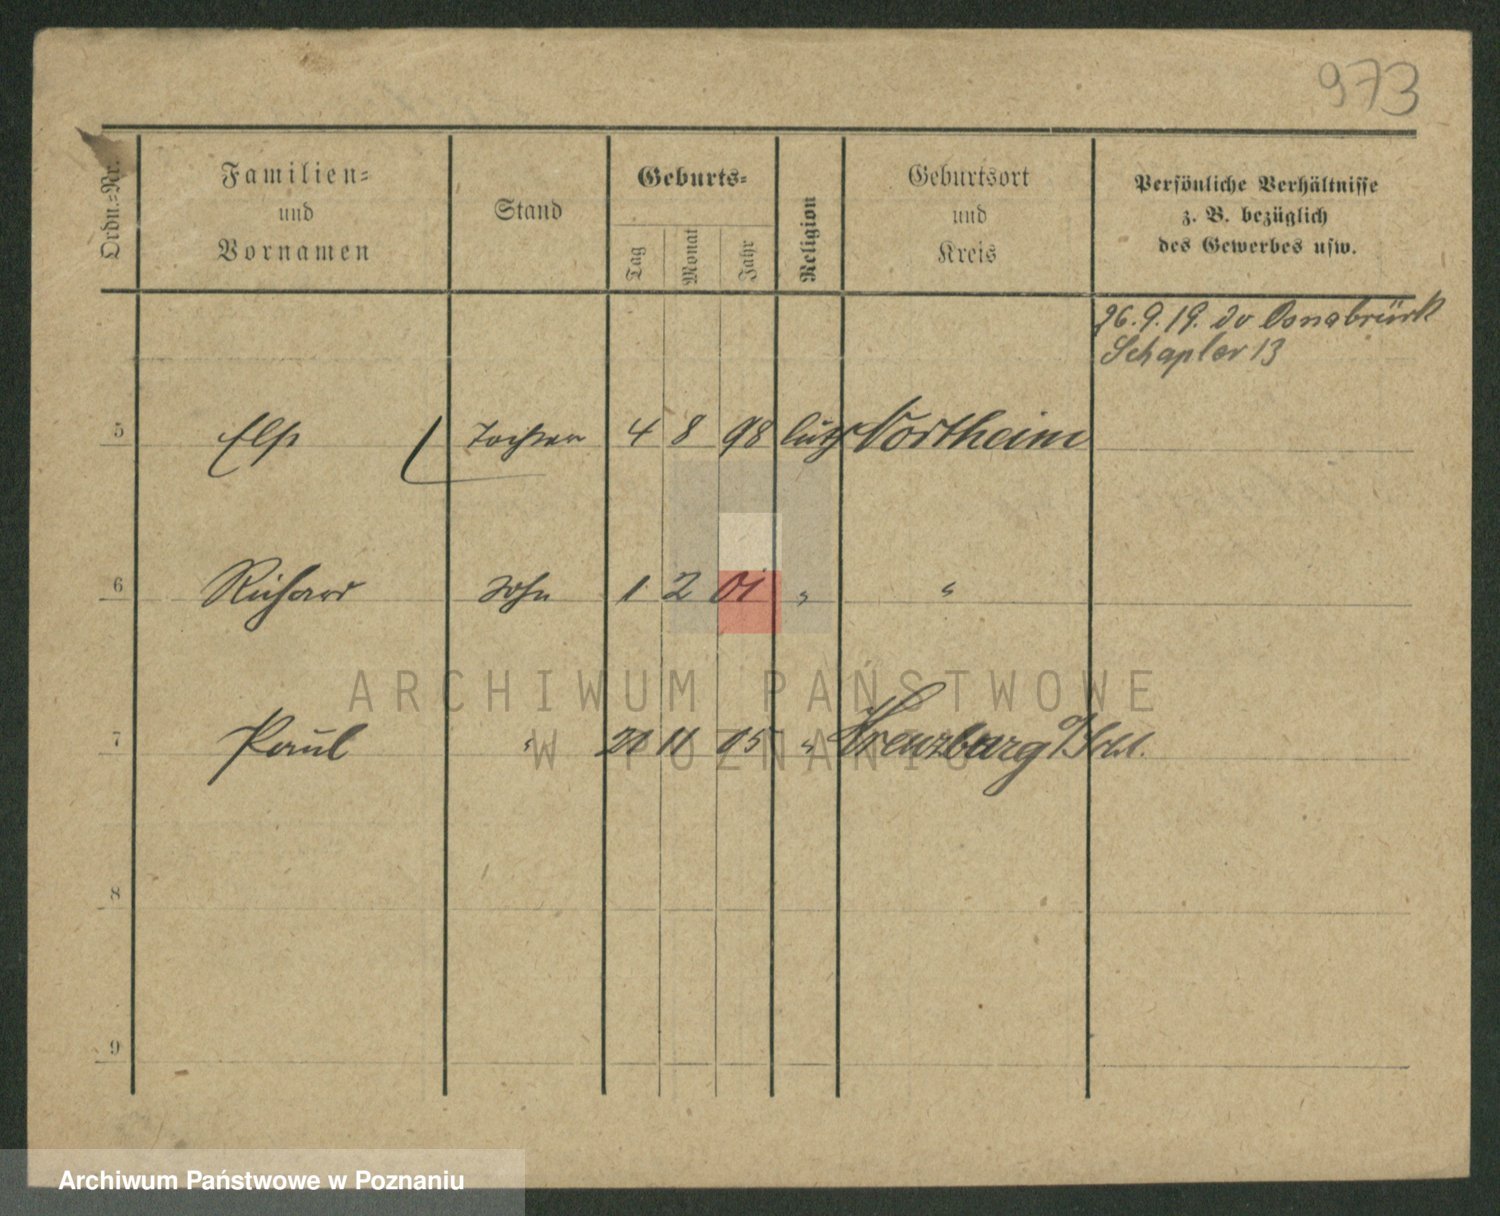 973
Ordn.=Nr.
Familien=
und
Vornamen
Stand
Geburts=
Tag
Monat
Jahr
Religion
Geburtsort
und
Kreis
Persönliche Verhältnisse
z. B. bezüglich
des Gewerbes usw.
26.9.19. Osnabrück
Schapler 13
5 Else Tochter 4 8 98 luth Northeim
6 Richard Sohn 1 2 01 " "
7 Paul " 11 05 " Kreuzburg O/Schl.
8
9
ARCHIWUM PAŃSTWOWE
W POZNANIU
Archiwum Państwowe w Poznaniu